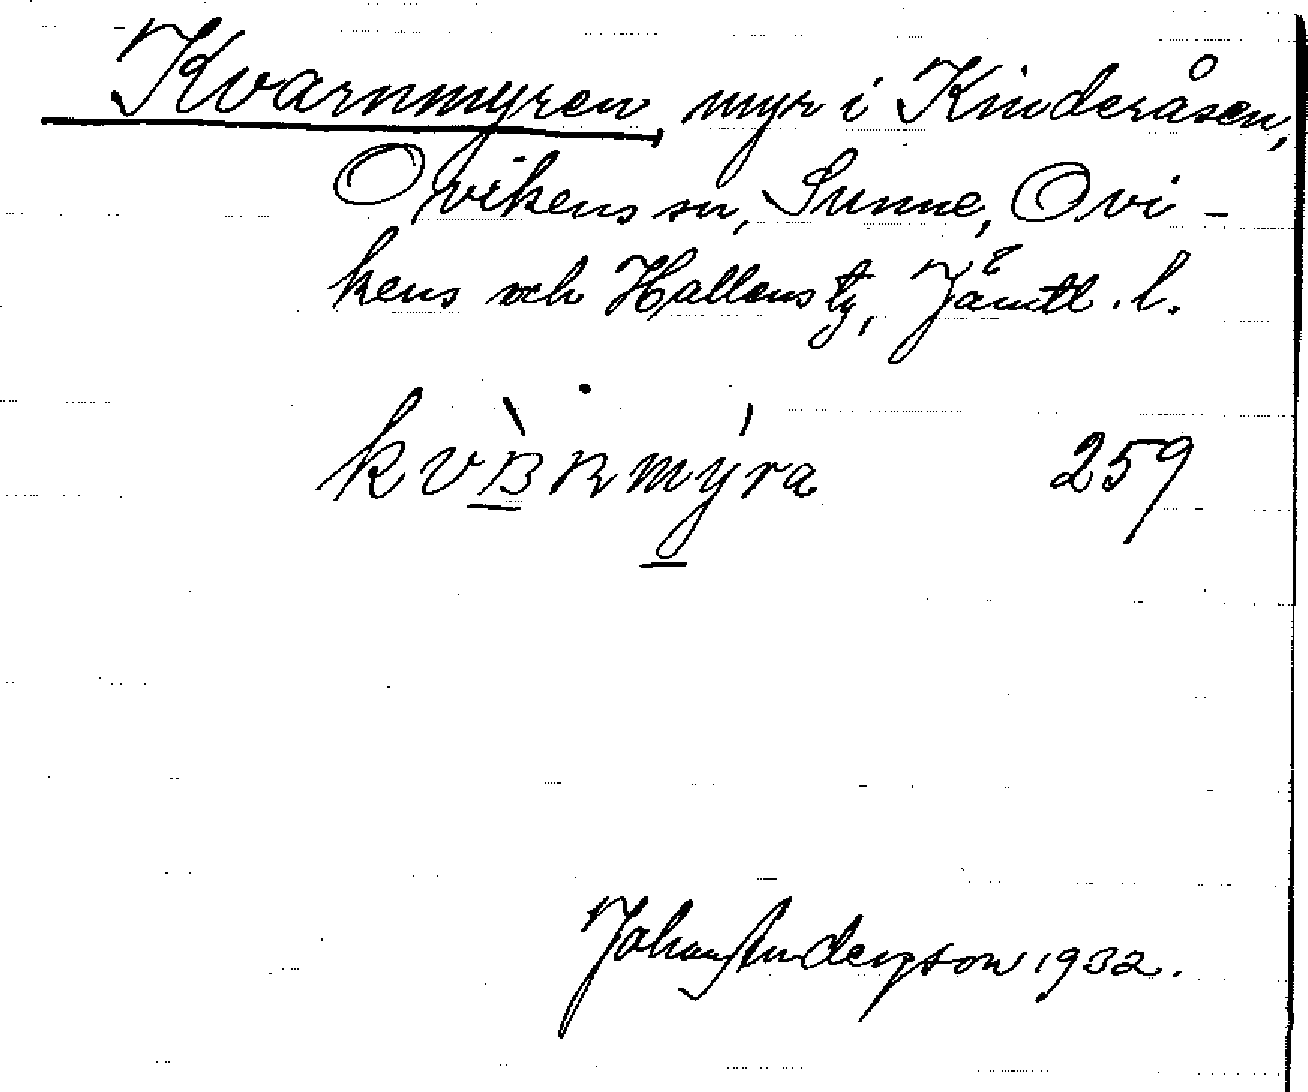 Kvarnmyren myr i Kinderåsen,
Ovikens sn, Sunne, Ovi-
kens och Hallens tg, Jämtl. l.
259
Johan Anderson 1932.